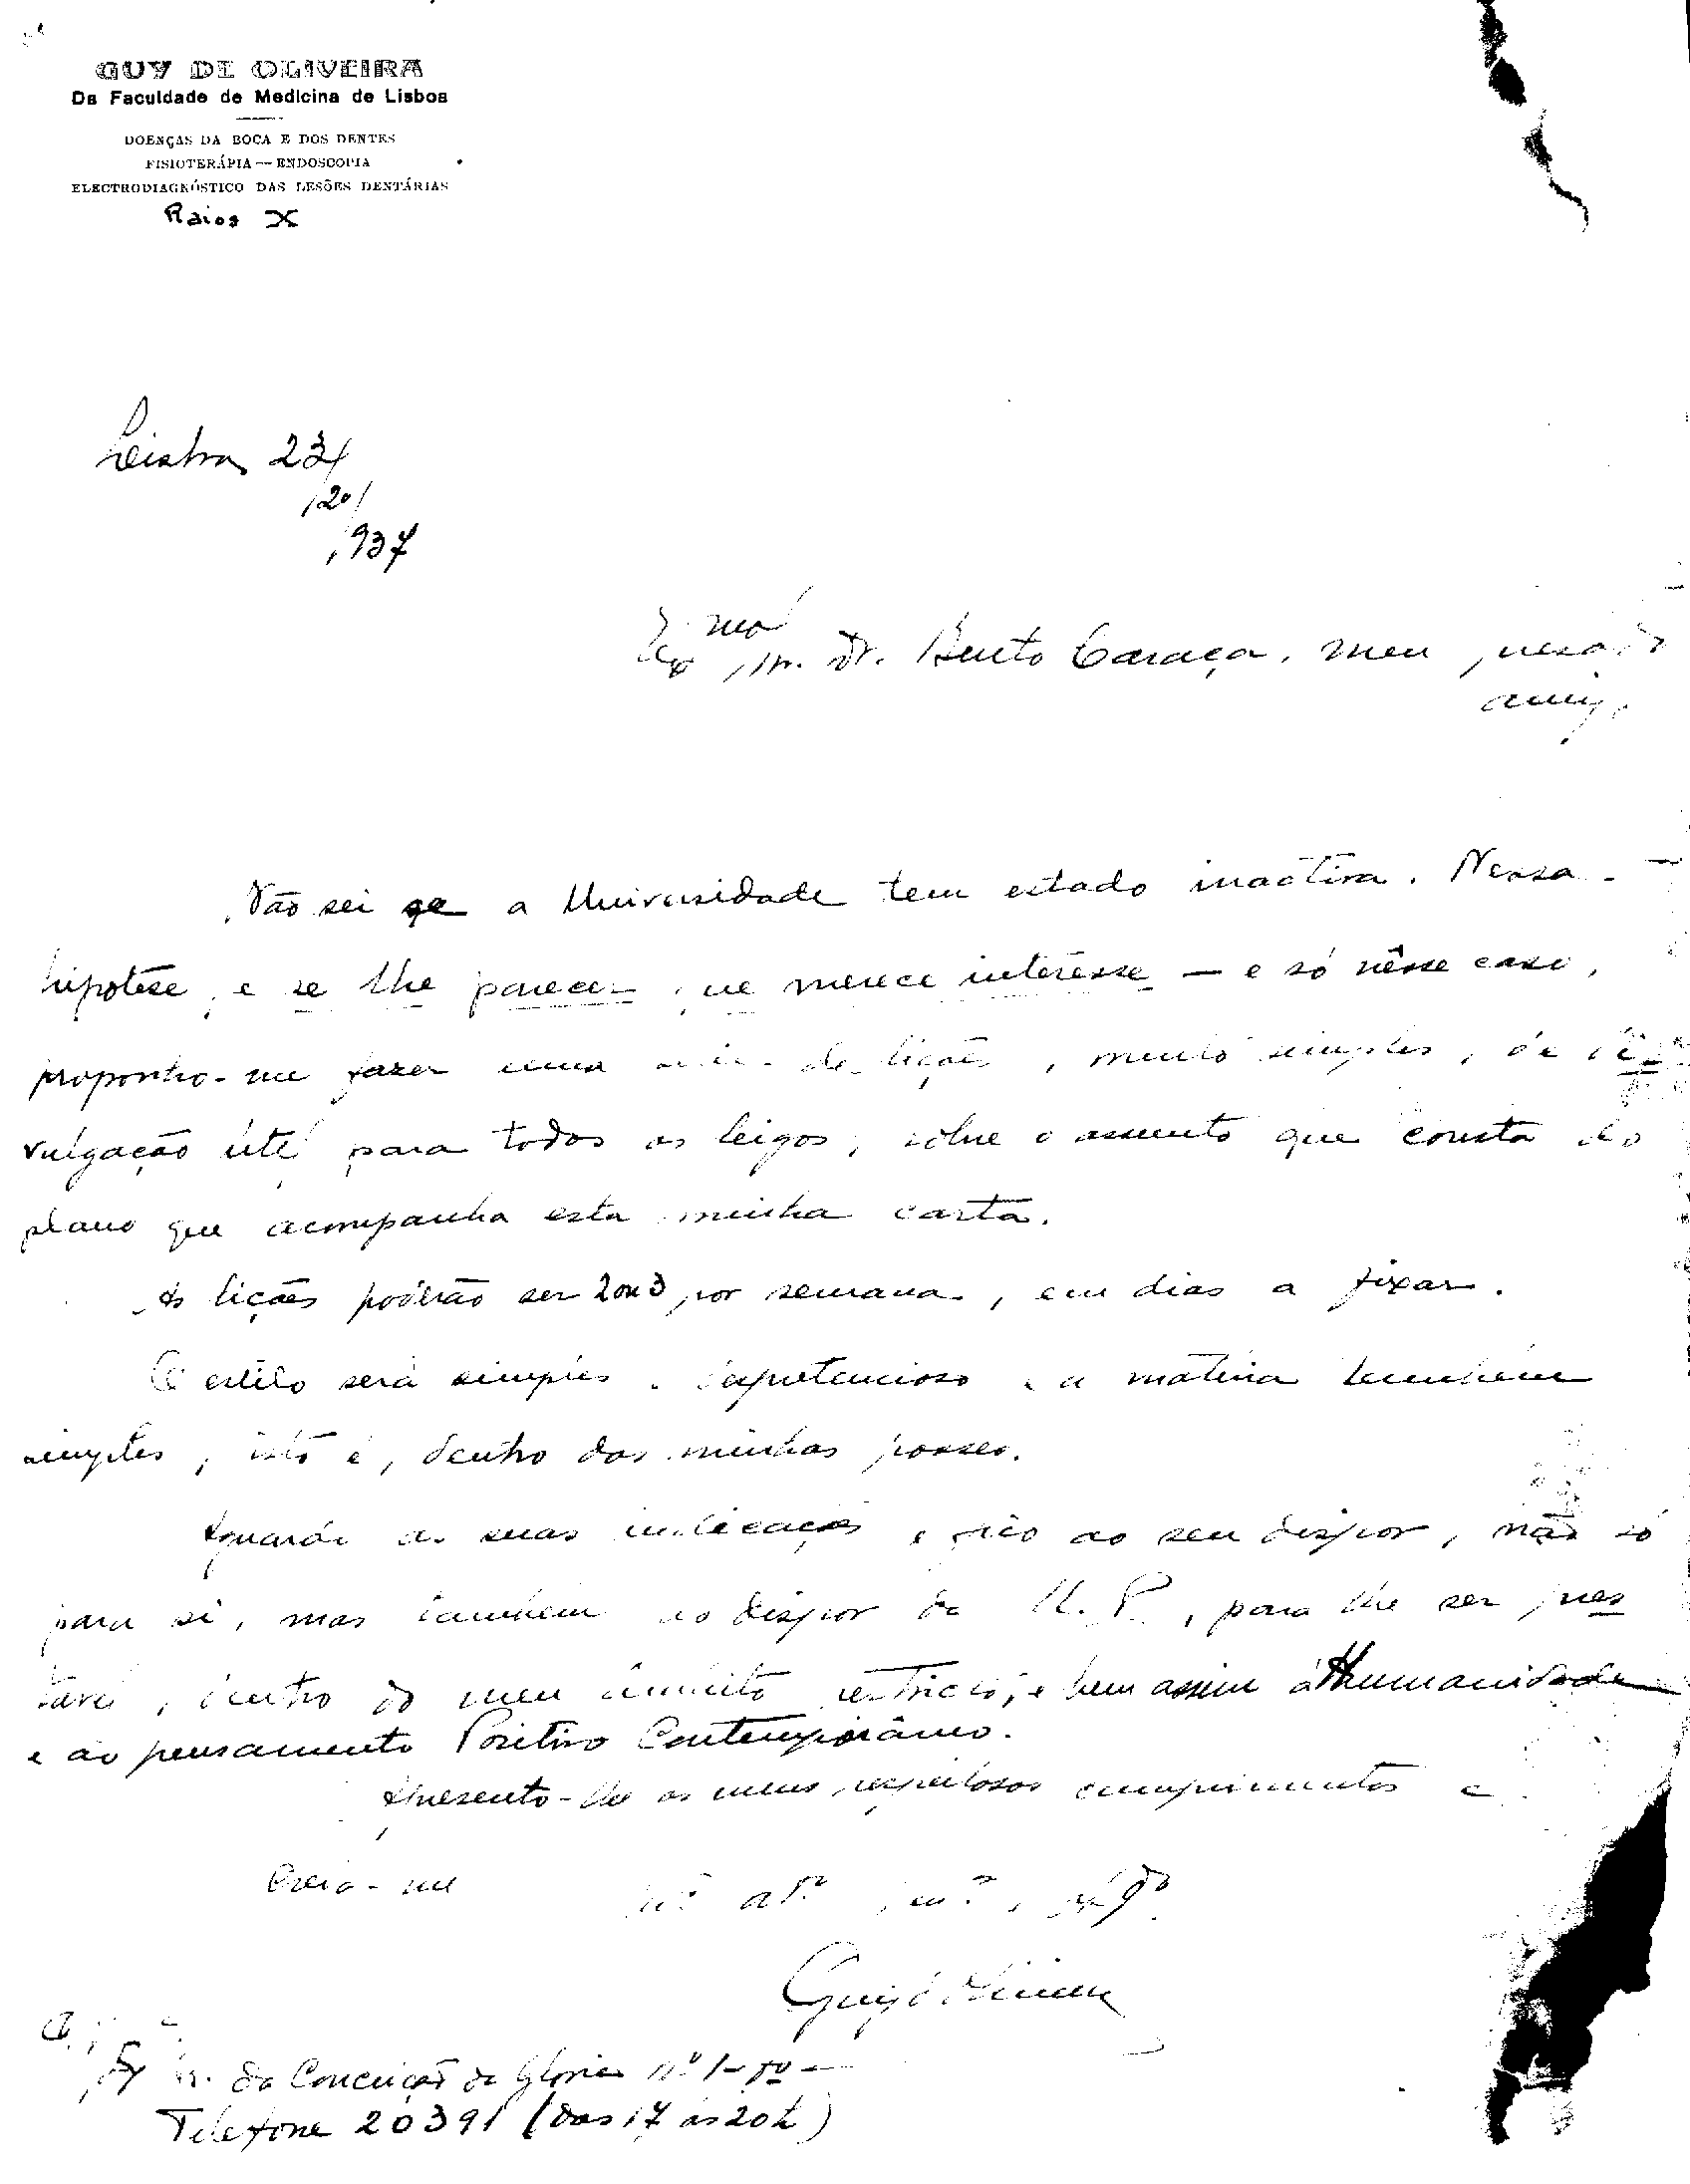 GUY DE OLIVEIRA
Da Faculdade de Medicina de Lisboa
DOENÇAS DA BOCA E DOS DENTES
FISIOTERÁPIA — ENDOSCOPIA
ELECTRODIAGNÓSTICO DAS LESÕES DENTÁRIAS
Raios X
Lisboa, 23/
/20/
,937
Exmo Sr. Dr. Bento Caraça, meu
Não sei se a Universidade tem estado inactiva. Nessa
hipotese, e se lhe parecer que merece interêsse — e só nêsse caso,
proponho-me fazer uma de lições, muito simples, de
vulgação util para todos os leigos, sobre o assunto que consta do
plano que acompanha esta minha carta.
As lições poderão ser 2 ou 3 por semana, em dias a fixar.
O estilo será simples e a matéria tambem
simples, isto é, dentro das minhas posses.
Aguardo as suas indicações e fico ao seu dispor, não só
para si, mas tambem ao dispor da U. P., para lhe ser pres
tavel, dentro do meu âmbito restricto, e bem assim á Humanidade
e ao pensamento Positivo Contemporâneo.
Apresento-lhe os meus respeitosos cumprimentos e
Creia-me
Guy d'Oliveira
da Conceição da Gloria nº 1-
Telefone 20391 (das 17 ás 20h)